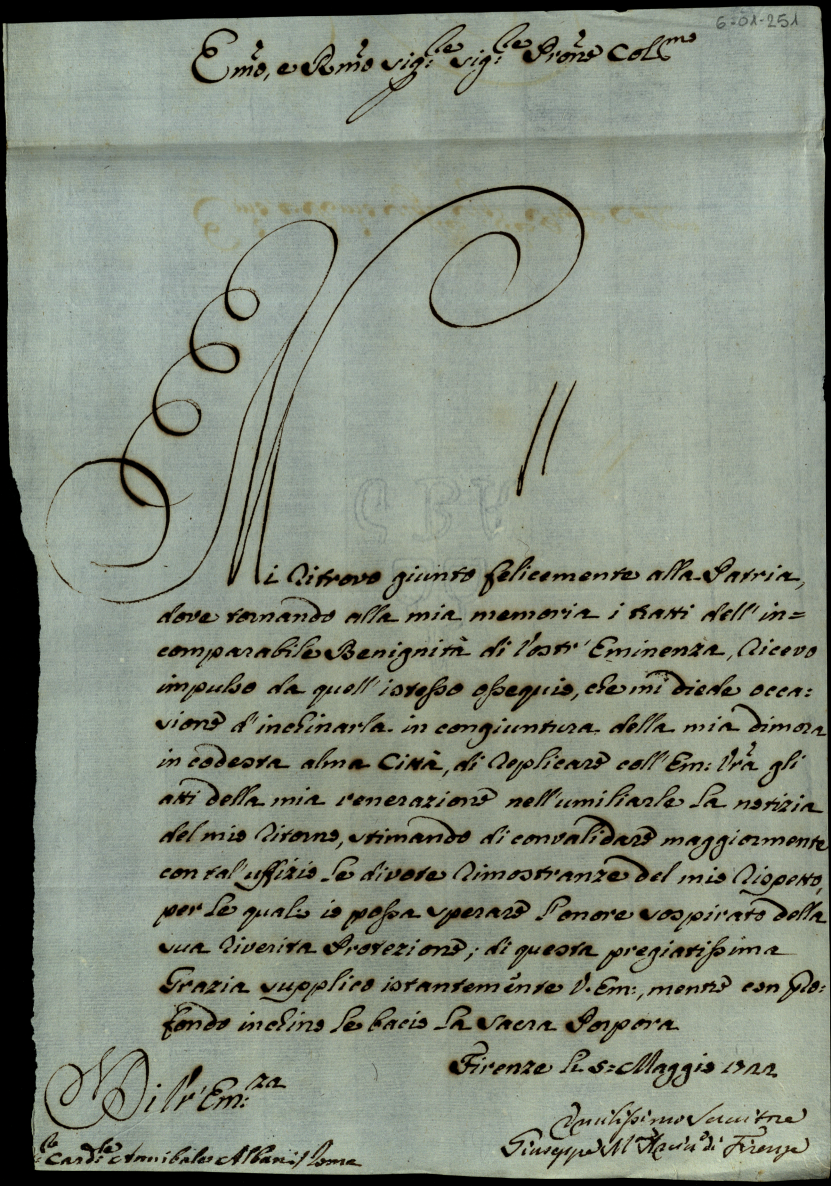 6-01-251
Em̃o, e Rm̃o Sig.re Sig.re Prõne Coll.mo
Mi ritrovo giunto felicemente alla Patria,
dove tornando alla mia memoria i tratti dell' in=
comparabile Benignità di Vostr' Eminenza, ricevo
impulso da quell' istesso ossequio, che mi diede occa=
sione d'inchinarla in congiuntura della mia dimora
in codesta alma Città, di replicare coll' Em: Vr̃a gli
atti della mia venerazione nell'umiliarle la notizia
del mio ritorno, stimando di convalidare maggiormente
con tal' uffizio le divote rimostranze del mio rispetto,
per le quali io possa sperare l'onore sospirato della
sua riverita Protezione; di questa pregiatissima
Grazia supplico istantemẽnte V. Em:, mentre con pro=
fondo inchino le bacio la Sacra Porpora
Firenze li 5: Maggio 1722
Di Vr̃' Em:za
Umilissimo Servitore
Giuseppe M. Arciv.o di Firenze
Card.le Annibale Albani / Roma